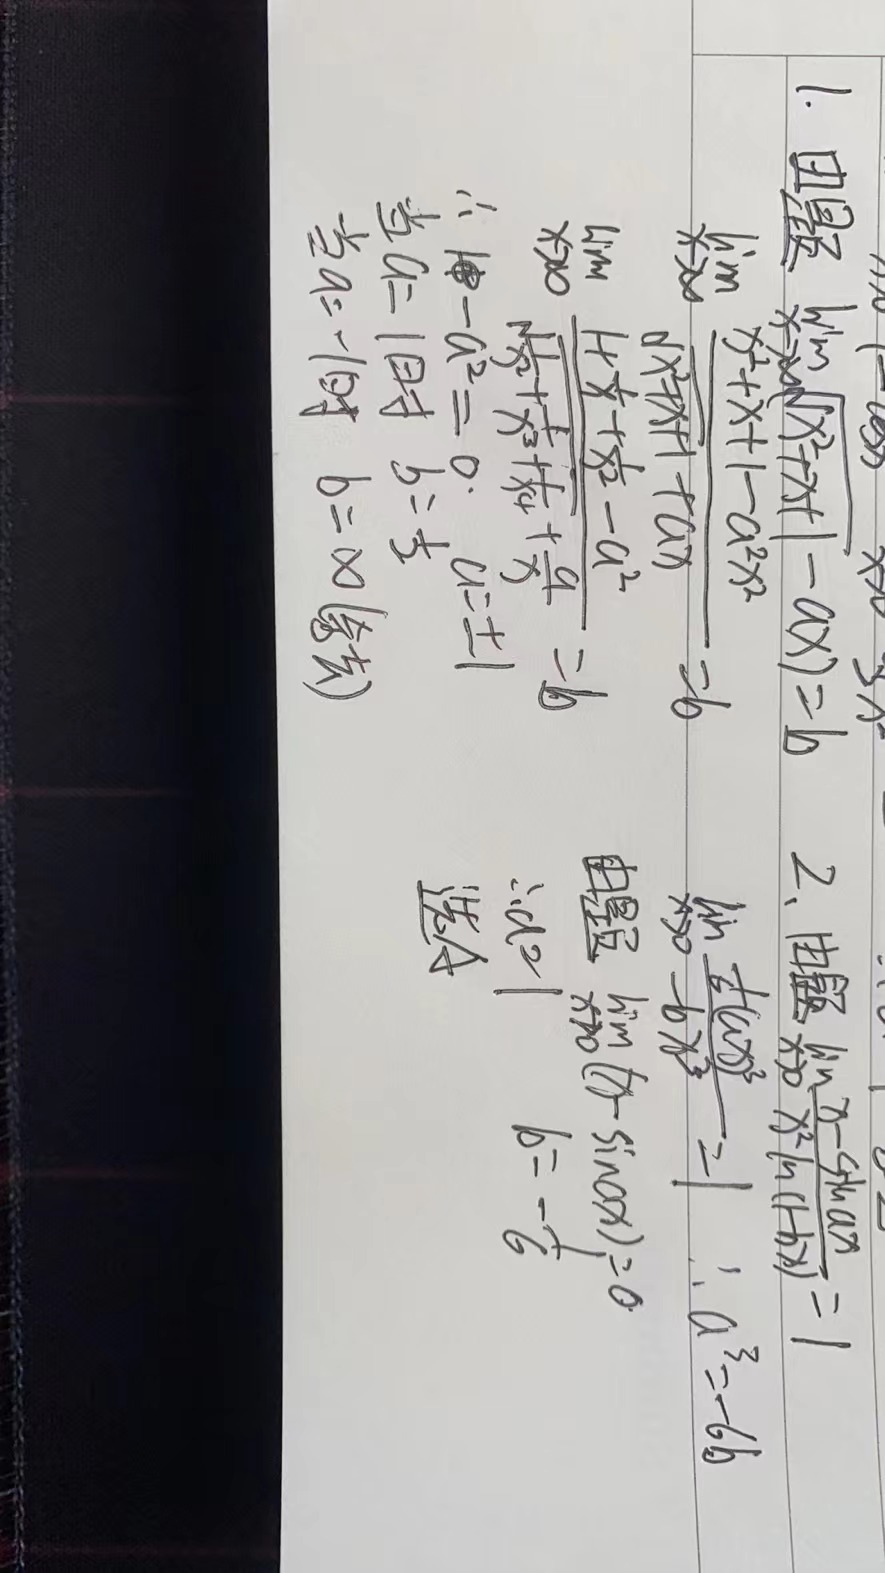 1. 由题 lim x→∞ (√(x²+x+1) - ax) = b
lim x→∞ (x²+x+1-a²x²)/(√(x²+x+1)+ax) = b
lim x→∞ (1+1/x+1/x²-a²)/(√(1/x²+1/x³+1/x⁴)+a/x) = b
∴ 1-a²=0. a=±1
当a=1时 b=1/2
当a=-1时 b=∞(舍去)
2、由题 lim x→0 (x-sinax)/(x²ln(1-bx)) = 1
lim x→0 (1/6(ax)³)/(-bx³) = 1 ∴ a³=-6b
由题 lim x→0 (x-sinax)=0
∴a=1 b=-1/6
选A